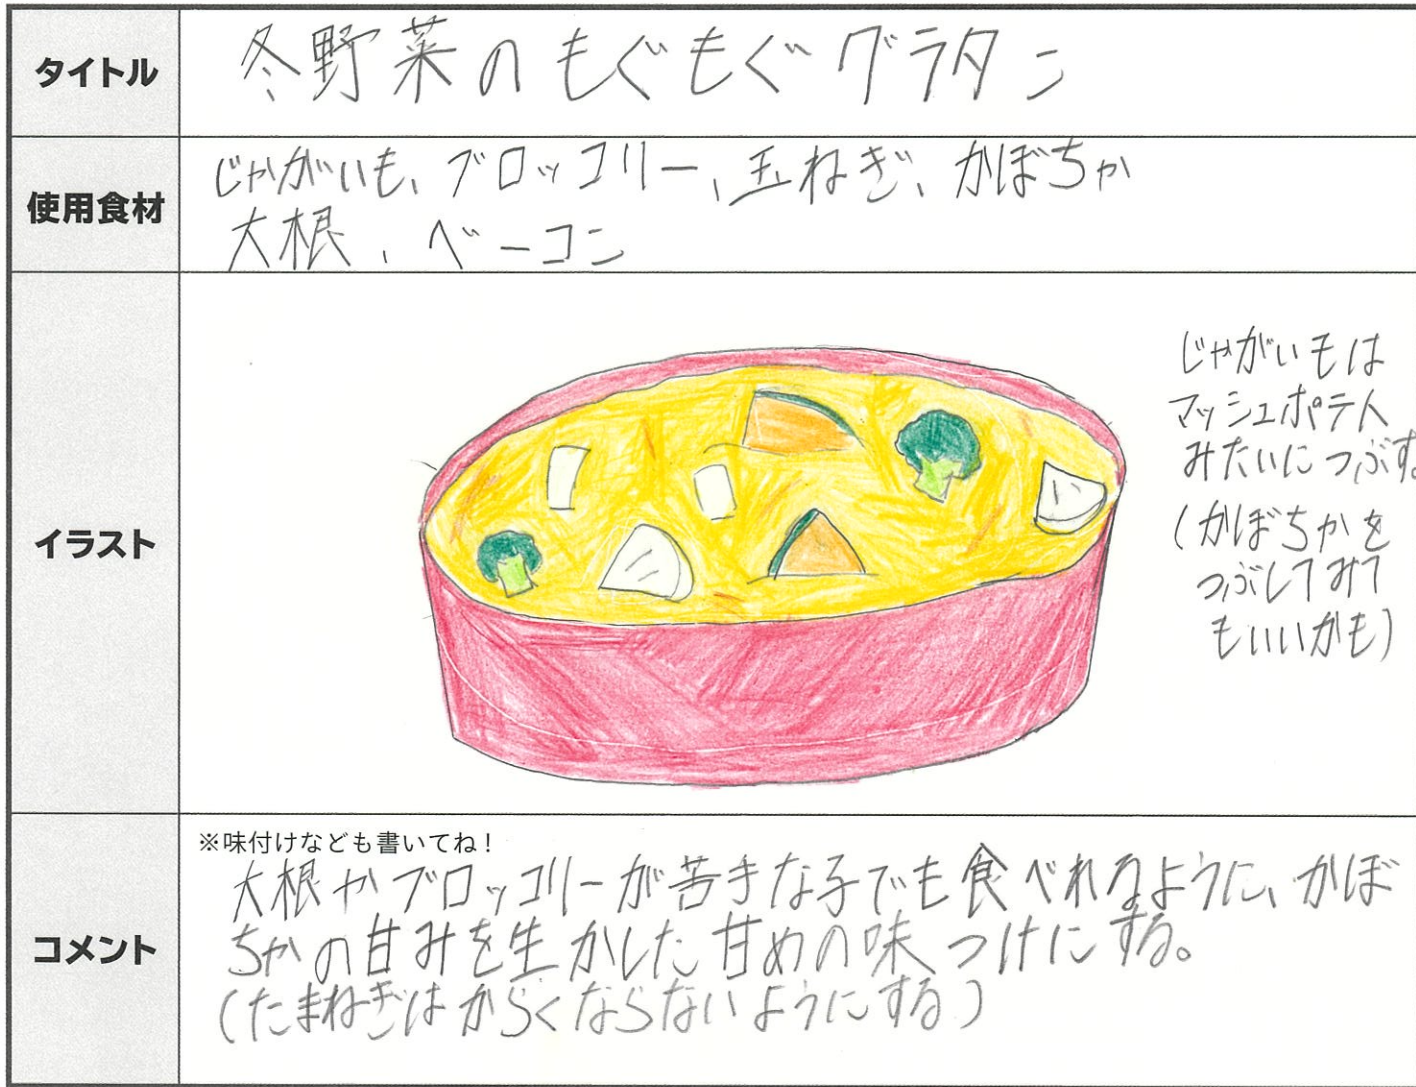 タイトル
冬野菜のもぐもぐグラタン
使用食材
じゃがいも、ブロッコリー、玉ねぎ、かぼちゃ
大根、ベーコン
イラスト
じゃがいもは
マッシュポテト
みたいにつぶす。
(かぼちゃを
つぶしてみて
もいいかも)
コメント
※味付けなども書いてね!
大根やブロッコリーが苦きな子でも食べれるように、かぼ
ちゃの甘みを生かした甘めの味つけにする。
(たまねぎはからくならないようにする)